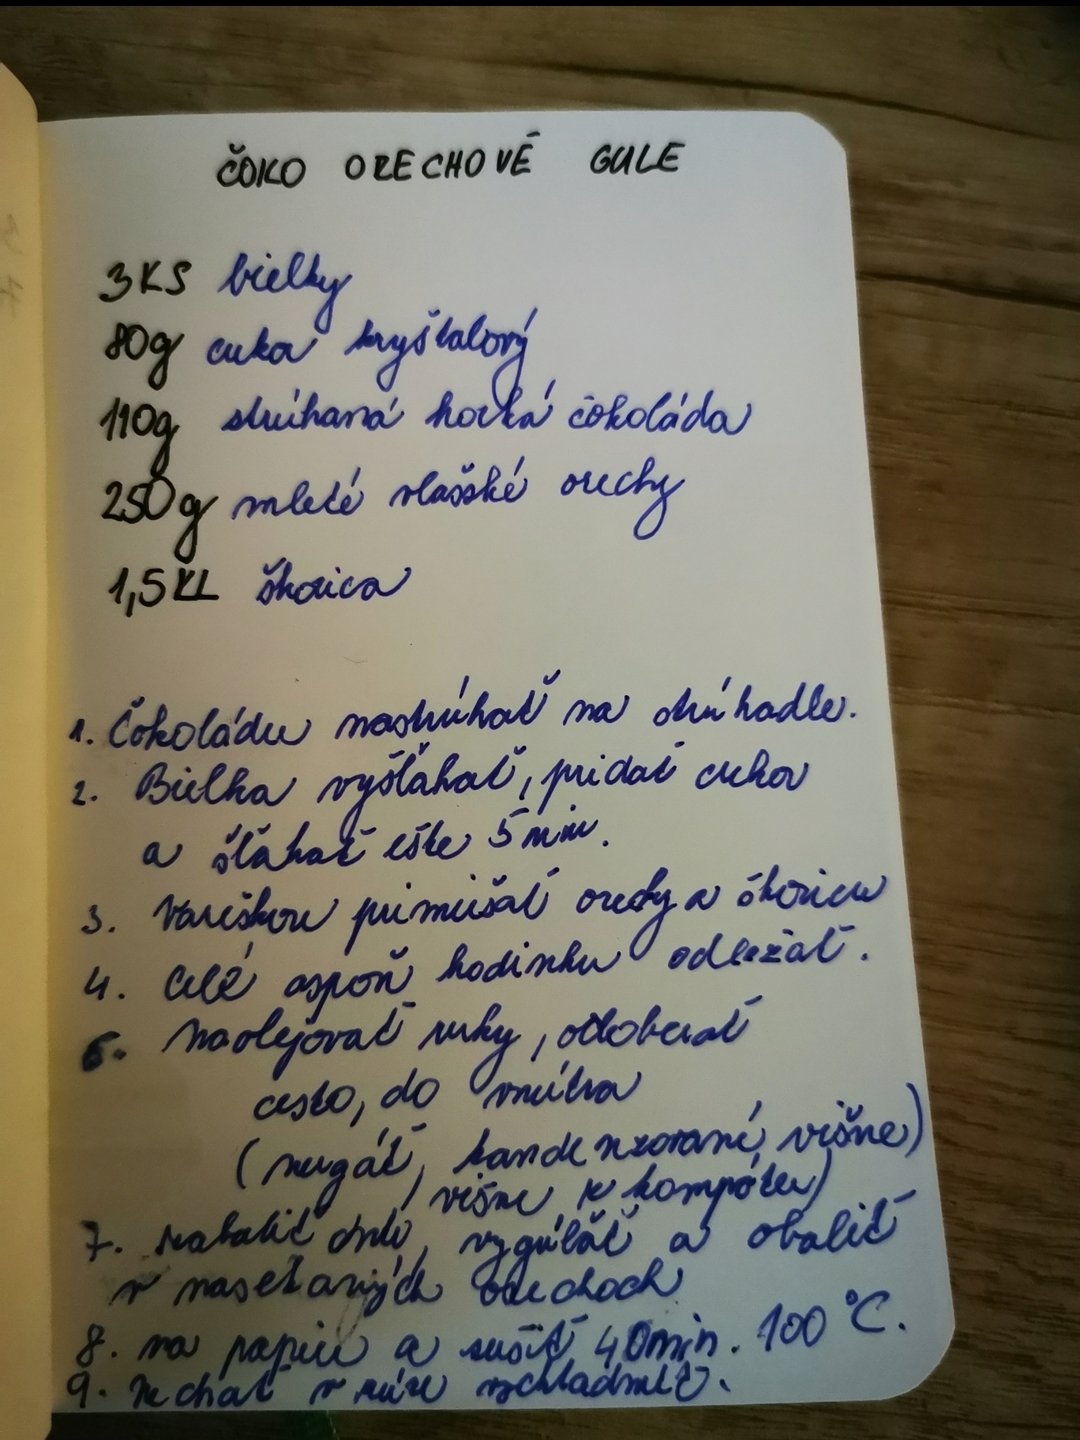 ČOKO ORECHOVÉ GULE
3KS bielky
80g cukor kryštalový
110g strúhaná horká čokoláda
250g mleté vlašské orechy
1,5KL škorica
1. Čokoládu nastrúhať na strúhadle.
2. Bielka vyšľahať, pridať cukor
a šľahať ešte 5 min.
3. Vareškou primiešať orechy a škoricu
4. Celé aspoň hodinku odležať.
6. Naolejovať ruky, odoberať
cesto, do vnútra
(nugát, kandenzované višne)
višne z kompótu)
7. zabaliť, vygúľať a obaliť
v nasekaných orechoch
8. na papier a sušiť 40min. 100°C.
9. Nechať v rúre vychladnúť.